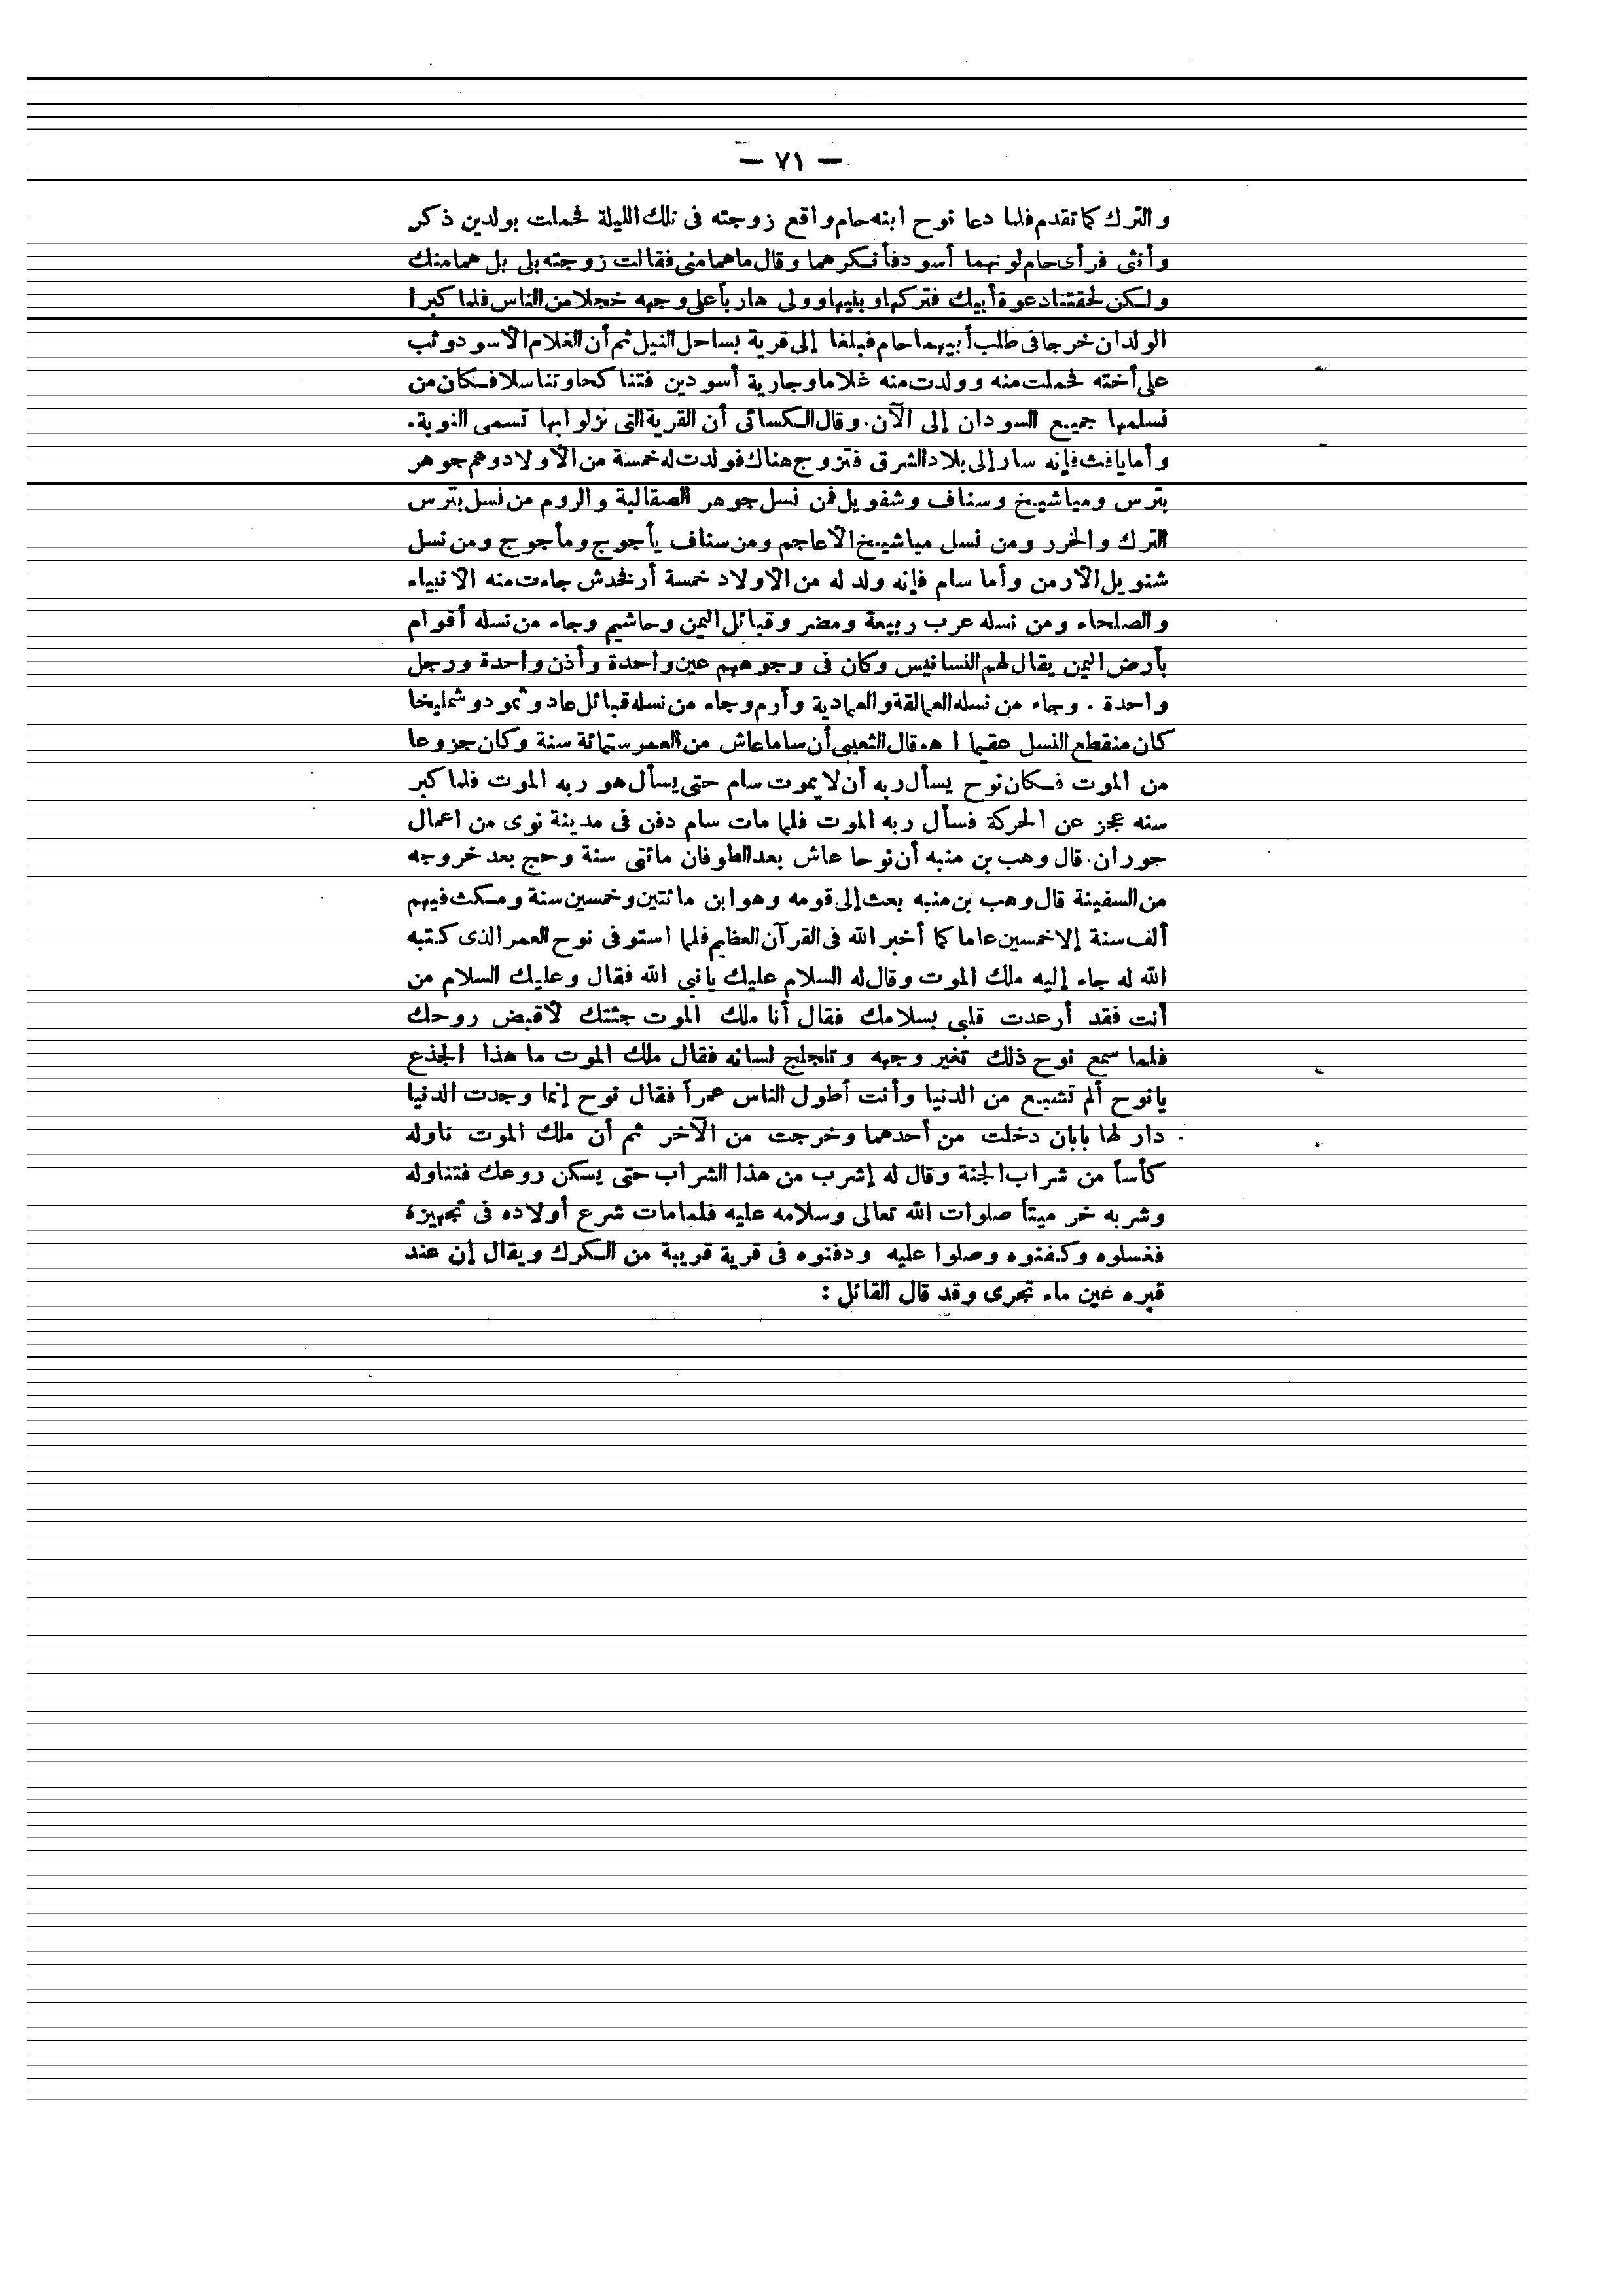 — ٧١ —
والترك كما تقدم فلما دعا نوح ابنه حام واقع زوجته فى تلك الليلة فحملت بولدين ذكر
وأنثى فرأى حام لونهما أسود فأنكرهما وقال ما هما منى فقالت زوجته بلى بل هما منك
ولكن لحقتنا دعوة أبيك فتركها وبنيها وولى هاربا على وجهه خجلا من الناس فلما كبرا
الولدان خرجا فى طلب أبيهما حام فبلغا إلى قرية بساحل النيل ثم أن الغلام الأسود وثب
على أخته فحملت منه وولدت منه غلاما وجارية أسودين فتناكحا وتناسلا فكان من
نسلهما جميع السودان إلى الآن. وقال الكسائى أن القرية التى نزلوا بها تسمى النوبة.
وأما يافث فإنه سار إلى بلاد الشرق فتزوج هناك فولدت له خمسة من الأولاد وهم جوهر
بترس ومياشيخ وسناف وشفويل فمن نسل جوهر الصقالبة والروم من نسل بترس
الترك والخرر ومن نسل مياشيخ الأعاجم ومن سناف يأجوج ومأجوج ومن نسل
شنويل الأرمن وأما سام فإنه ولد له من الاولاد خمسة أرفخدش جاءت منه الانبياء
والصلحاء ومن نسله عرب ربيعة ومضر وقبائل اليمن وحاشيم وجاء من نسله أقوام
بأرض اليمن يقال لهم النسانيس وكان فى وجوههم عين واحدة وأذن واحدة ورجل
واحدة . وجاء من نسله العمالقة والعمادية وأرم وجاء من نسله قبائل عاد وثمود وشمليخا
كان منقطع النسل عقيما ا ه. قال الثعبى أن ساما عاش من العمر ستمائة سنة وكان جزوعا
من الموت فكان نوح يسأل ربه أن لا يموت سام حتى يسأل هو ربه الموت فلما كبر
سنه عجز عن الحركة فسأل ربه الموت فلما مات سام دفن فى مدينة نوى من اعمال
جوران. قال وهب بن منبه أن نوحا عاش بعد الطوفان مائتى سنة وحج بعد خروجه
من السفينة قال وهب بن منبه بعث إلى قومه وهو ابن مائتين وخمسين سنة ومكث فيهم
ألف سنة إلا خمسين عاما كما أخبر الله فى القرآن العظيم فلما استوفى نوح العمر الذى كتبه
الله له جاء إليه ملك الموت وقال له السلام عليك يا نبى الله فقال وعليك السلام من
أنت فقد أرعدت قلبى بسلامك فقال أنا ملك الموت جئتك لأقبض روحك
فلما سمع نوح ذلك تغير وجهه وتلجلج لسانه فقال ملك الموت ما هذا الجذع
يا نوح ألم تشبع من الدنيا وأنت أطول الناس عمراً فقال نوح إنما وجدت الدنيا
دار لها بابان دخلت من أحدهما وخرجت من الآخر ثم أن ملك الموت ناوله
كأساً من شراب الجنة وقال له إشرب من هذا الشراب حتى يسكن روعك فتناوله
وشربه خر ميتاً صلوات الله تعالى وسلامه عليه فلما مات شرع أولاده فى تجهيزة
فغسلوه وكفنوه وصلوا عليه ودفنوه فى قرية قريبة من الكرك ويقال إن عند
قبره عين ماء تجرى وقد قال القائل :